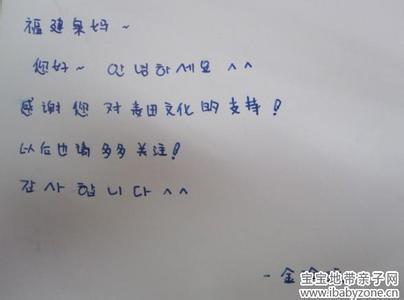 福建泉妈~
您好~ 안녕하세요^^
感谢您对麦田文化的支持!
以后也请多多关注!
감사합니다^^
- 金
宝宝地带亲子网
www.ibabyzone.cn